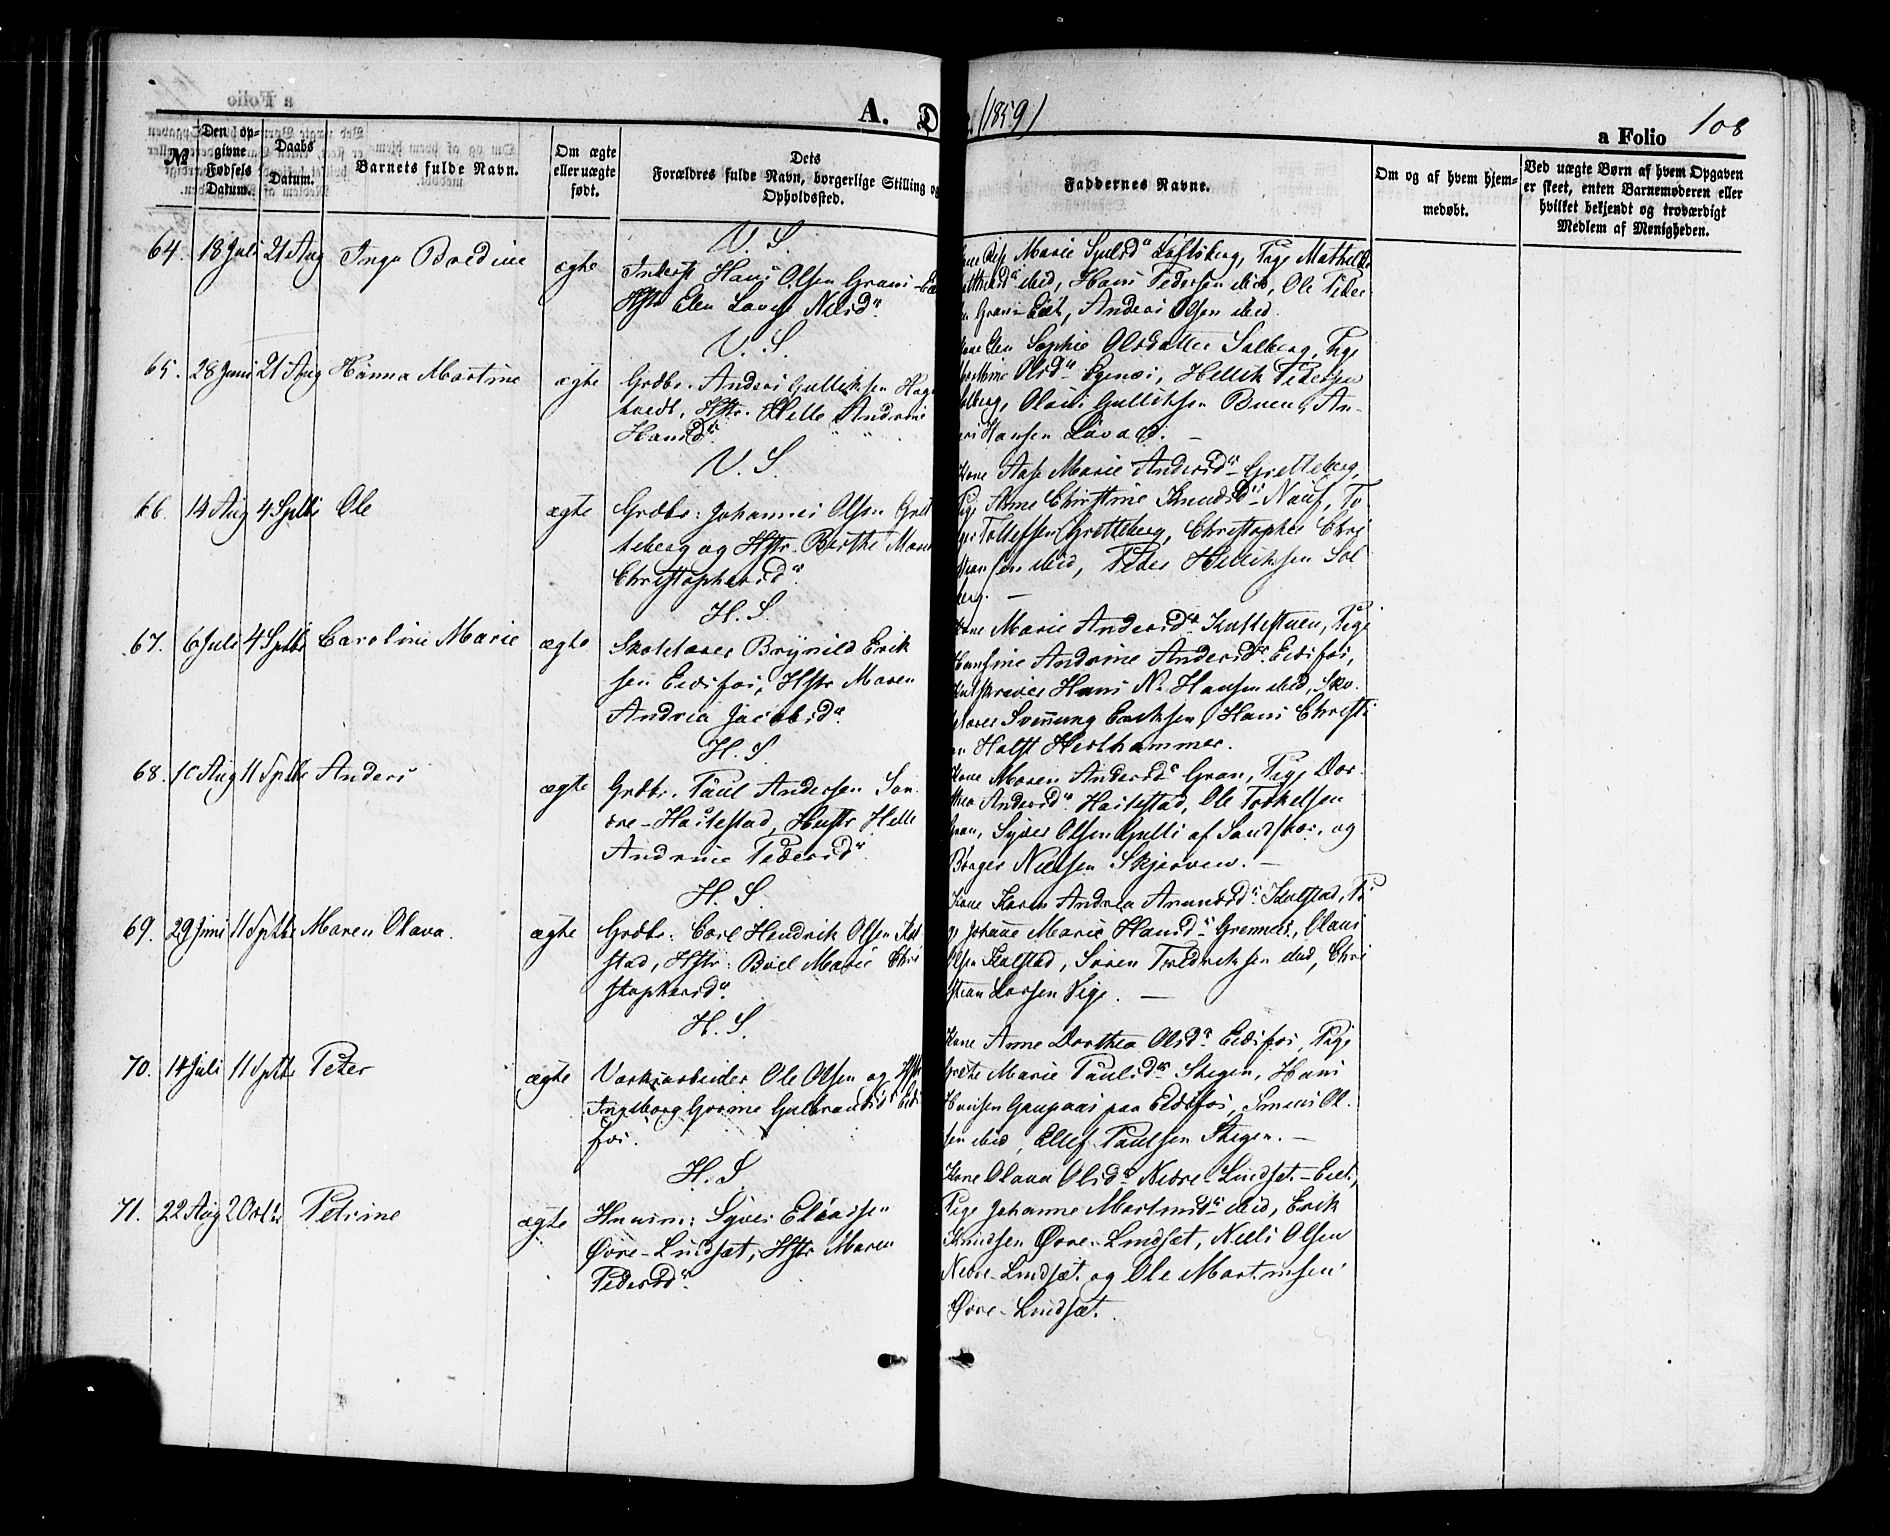 A. D (1859)
a Folio 108
№
Den opgivne Fødsels Datum.
Daabs Datum.
Barnets fulde Navn.
Om ægte eller uægte født.
Dets Forældres fulde Navn, borgerlige Stilling og Opholdssted.
Faddernes Navne.
Om og af hvem hjemmedøbt.
Ved uægte Børn af hvem Opgaven er skeet, enten Barnemoderen eller hvilket bekjendt og troværdigt Medlem af Menigheden.
V. S.
64. 18 Juli 21 Aug Inga Bredine ægte
Inderst Hans Olsen Grans-
Hstr Elen Lovise Nilsdr
Marie Syvlsdr Løftsberg, Pige Mathilde
ibid, Hans Pedersen ibid, Ole Peder
n Grans-Eiet, Anders Olsen ibid.
V. S.
65. 28 Juni 21 Aug Hanna Martine ægte
Grdbr. Anders Gulliksen Hag
tvedt, Hstr. Helle Andrine
Hansdr
Kone Elen Sophie Olsdatter Solberg, Pige
Olsdr Egenæs, Hellik Pedersen
olberg, Olaus Gulliksen Buen, An-
ers Hansen Løvaas. –
V. S.
66. 14 Aug 4 Septbr Ole ægte
Grdbr: Johannes Olsen Gret
teberg og Hstr. Berthe Maria
Christophersdr
Kone Aase Marie Andersdr Gretteberg,
Pige Anne Christine Knudsdr Næss, To-
ger Tollefsen Gretteberg, Christopher Chri
stiansen ibid, Peder Helliksen Sol
berg. –
H. S.
67. 6 Juli 4 Septbr Caroline Marie ægte
Skolelærer Brynild Erik
sen Eidsfos, Hstr Maren
Andrea Jacobsdr
Kone Marie Andersdr Kulestuen, Pige
Hansine Andrine Andersdr Eidsfos,
Hans N. Hansen ibid, Sko-
lelærer Svennung Eriksen, Hans Christi
an Holst Hesthammer.
H. S.
68. 10 Aug 11 Septbr Anders ægte
Grdbr. Paul Andersen Søn-
dre-Haslestad, Hustr Helle
Andrine Pedersdr
Kone Maren Andersdr Gran, Pige Dor-
thea Andersdr Haslestad, Ole Torkelsen
Gran, Syver Olsen Gulli af Sandshær, og
Børger Nielsen Skjerven. –
H. S.
69. 29 Juni 11 Septbr Maren Olava. ægte
Grdbr: Carl Hendrik Olsen Kal
stad, Hstr: Boel Marie Chri
stophersdr
Kone Karen Andrea Amundsdr Kalstad, Pi
ge Johanne Marie Hansdr Grennes, Olaus
Olsen Kalstad, Søren Fredriksen ibid, Chri
stian Larsen Vige. –
H. S.
70. 14 Juli 11 Septbr Peter ægte
Værksarbeider Ole Olsen og Hstr
Ingeborg Gurine Gulbrandsdr Eids
fos.
Kone Anne Dorthea Olsdr Eidsfos, Pige
Grethe Marie Paulsdr Skegen, Hans
Hansen Gaupaas paa Eidsfos, Ol-
sen ibid, Ellef Paulsen Skegen. –
H. S.
71. 22 Aug 2 Octbr Petrine ægte
Huusm: Syver Eliassen
Øvre-Lindsæt, Hstr Maren
Pedersdr
Kone Olava Olsdr Nedre-Lindsæt-Eiet,
Pige Johanne Martinsdr ibid, Erik
Knudsen Øvre-Lindsæt, Niels Olsen
Nedre-Lindsæt og Ole Martinsen
Øvre-Lindsæt.